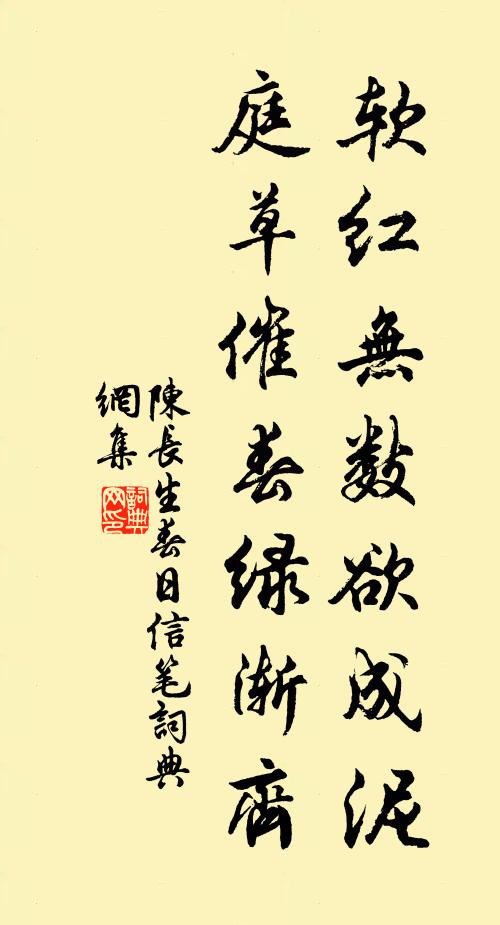 软红無数欲成泥
庭草催春绿渐齊
陳長生春日信笔詞典
網集
詞典
网印